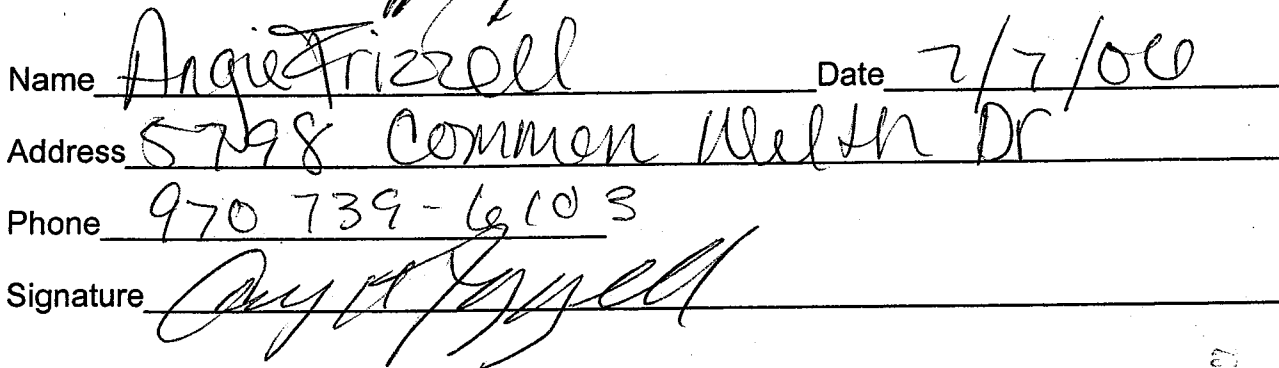 Name Angie Frizzell Date 7/7/06
Address 5798 Common Welth Dr
Phone 970 739-6103
Signature